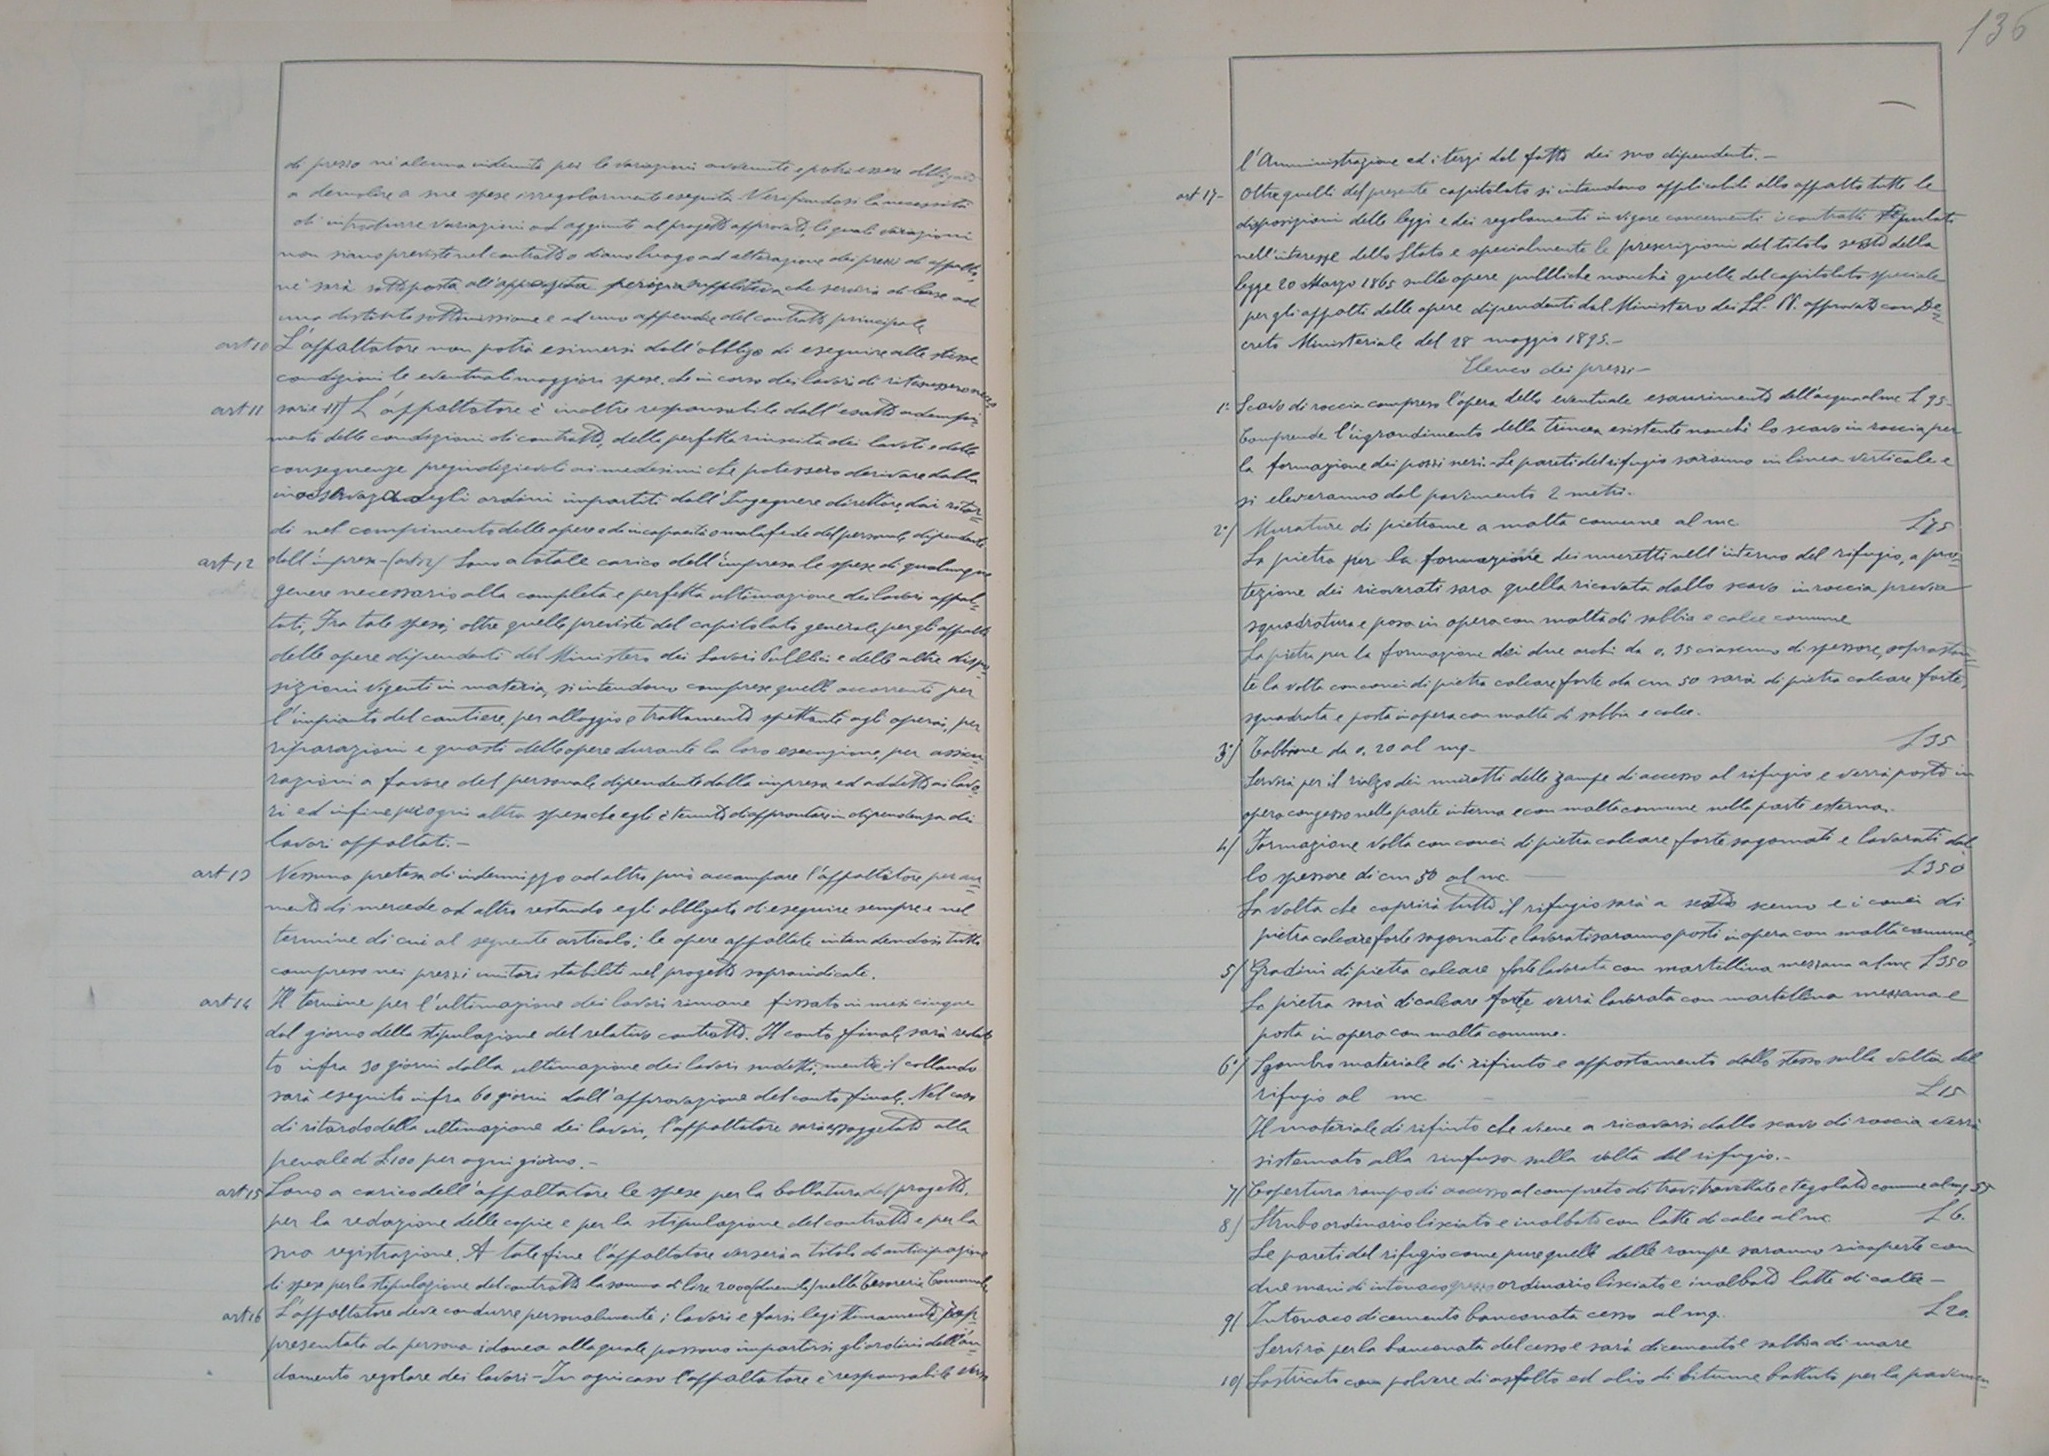 di prezzo nè alcuna indennità per le variazioni avvenute e potrà essere obbligato
a demolire a sue spese irregolarmente eseguita. Verificandosi la necessità
di introdurre variazioni od aggiunte al progetto approvato, le quali variazioni
non siano previste nel contratto o diano luogo ad alterazione dei prezzi di appalto,
ne sarà sottoposta all'apposita perizia suppletiva che servirà di base ad
una distinta sottomissione e ad uno appendice del contratto principale
art 10 L'appaltatore non potrà esimersi dall'obbligo di eseguire alle stesse
condizioni le eventuali maggiori spese che in corso dei lavori di ritenessero neces
art 11 sarie 11) L'appaltatore è inoltre responsabile dall'esatto adempi-
mento delle condizioni di contratto, della perfetta riuscita dei lavori e delle
conseguenze pregiudizievoli ai medesimi che potessero derivare dalla
degli ordini impartiti dall'Ingegnere direttore, dai ritar=
di nel compimento delle opere e di incapacità o mala fede del personale dipendente
art 12 dall'impresa - (art 12) Sono a totale carico dell'impresa le spese di qualunque
genere necessario alla completa e perfetta ultimazione dei lavori appal-
tati. Fra tale spesa, oltre quelle previste del capitolato generale per gli appalti
delle opere dipendenti del Ministero dei Lavori Pubblici e delle altre dispo=
sizioni vigenti in materia, si intendono comprese quelle occorrenti per
l'impianto del cantiere, per alloggio e trattamento spettante agli operai, per
riparazioni e guasti delle opere durante la loro esecuzione, per assicu=
razioni a favore del personale dipendente dalla impresa ed addetto ai lavo=
ri ed infine per ogni altra spesa che egli è tenuto di approntare in dipendenza dei
lavori appaltati. -
art 13 Nessuna pretesa di indennizzo od altro può accampare l'appaltatore per au=
mento di mercede od altro restando egli obbligato di eseguire sempre e nel
termine di cui al seguente articolo; le opere appaltate intendendosi tutto
compreso nei prezzi unitari stabiliti nel progetto sopraindicate.
art 14 Il termine per l'ultimazione dei lavori rimane fissato in mesi cinque
dal giorno della stipulazione del relativo contratto. Il conto finale sarà redat
to infra 30 giorni dalla ultimazione dei lavori sudetti, mentre il collaudo
sarà eseguito infra 60 giorni dall'approvazione del conto finale. Nel caso
di ritardo della ultimazione dei lavori, l'appaltatore sarà assoggettato alla
penale di L 100 per ogni giorno. -
art 15 Sono a carico dell'appaltatore le spese per la bollatura del progetto,
per la redazione delle copie e per la stipulazione del contratto e per la
sua registrazione. A tale fine l'appaltatore verserà a titolo di anticipazione
di spese per la stipulazione del contratto la somma di lire 2000 (duemila) nella Tesoreria Comunale
art 16 L'appaltatore deve condurre personalmente i lavori e farsi legittimamente rap=
presentata da persona idonea alla quale possono impartirsi gli ordini dell'an=
damento regolare dei lavori - In ogni caso l'appaltatore è responsabile verso
136
l'Amministrazione ed i terzi dal fatto dei suo dipendenti. -
art 17 - Oltre quelli del presente capitolato si intendono applicabili allo appalto tutte le
disposizioni delle leggi e dei regolamenti in vigore concernenti i contratti stipulati
nell'interesse dello Stato e specialmente le prescrizioni del titolo sesto della
legge 20 Marzo 1865 sulle opere pubbliche nonchè quelle del capitolato speciale
per gli appalti delle opere dipendenti dal Ministero dei LL. PP. approvato con De=
creto Ministeriale del 28 maggio 1895. -
Elenco dei prezzi -
1° Scavo di roccia compreso l'opera dello eventuale esaurimento dell'acqua al mc L 95 -
Comprende l'ingrandimento della trincea esistente nonchè lo scavo in roccia per
la formazione dei pozzi neri. Le pareti del rifugio saranno in linea verticale e
si eleveranno dal pavimento 2 metri. -
2°) Murature di pietrame a malta comune al mc L 75
La pietra per la formazione dei muretti nell'interno del rifugio, a pro=
tezione dei ricoverati sara quella ricavata dallo scavo in roccia previa
squadratura e posa in opera con malta di sabbia e calce comune
La pietra per la formazione dei due archi da 0,35 ciascuno di spessore, soprastan=
te la volta con conci di pietra calcare forte da cm 50 sarà di pietra calcare forte,
squadrata e posta in opera con malta di sabbia e calce.
3°) da 0,20 al mq - L 35
Servirà per il rialzo dei muretti delle rampe di accesso al rifugio e verrà posto in
opera con gesso nella parte interna e con malta comune nella parte esterna.
4) Formazione volta con conci di pietra calcare forte sagomati e lavorati dal
lo spessore di cm 50 al mc. L 350
La volta che coprirà tutto il rifugio sarà a sesto scemo e i conci di
pietra calcare forte sagomati e lavorati saranno posti in opera con malta comune.
5) Gradini di pietra calcare forte lavorata con martellina mezzana al mc L 350
La pietra sarà di calcare forte verrà lavorata con martellina mezzana e
posta in opera con malta comune.
6°) Sgombro materiale di rifiuto e appostamento dallo stesso sulla volta del
rifugio al mc L 15
Il materiale di rifiuto che viene a ricavarsi dallo scavo di roccia verrà
sistemato alla rinfusa sulla volta del rifugio. -
7) Copertura rampe di accesso al completo di travi travettate e tegolato comune al mq 55
8) ordinario lisciato e inalbato con latte di calce al mc L 6.
Le pareti del rifugio come pure quelle delle rampe saranno ricoperte con
due mani di intonaco grezzo ordinario lisciato e inalbato latte di calce -
9) Intonaco di cemento banconata cesso al mq. L 20.
Servirà per la banconata del cesso e sarà di cemento e sabbia di mare
10) Lastricato con polvere di asfalto ed olio di bitume battuto per la pavimen=